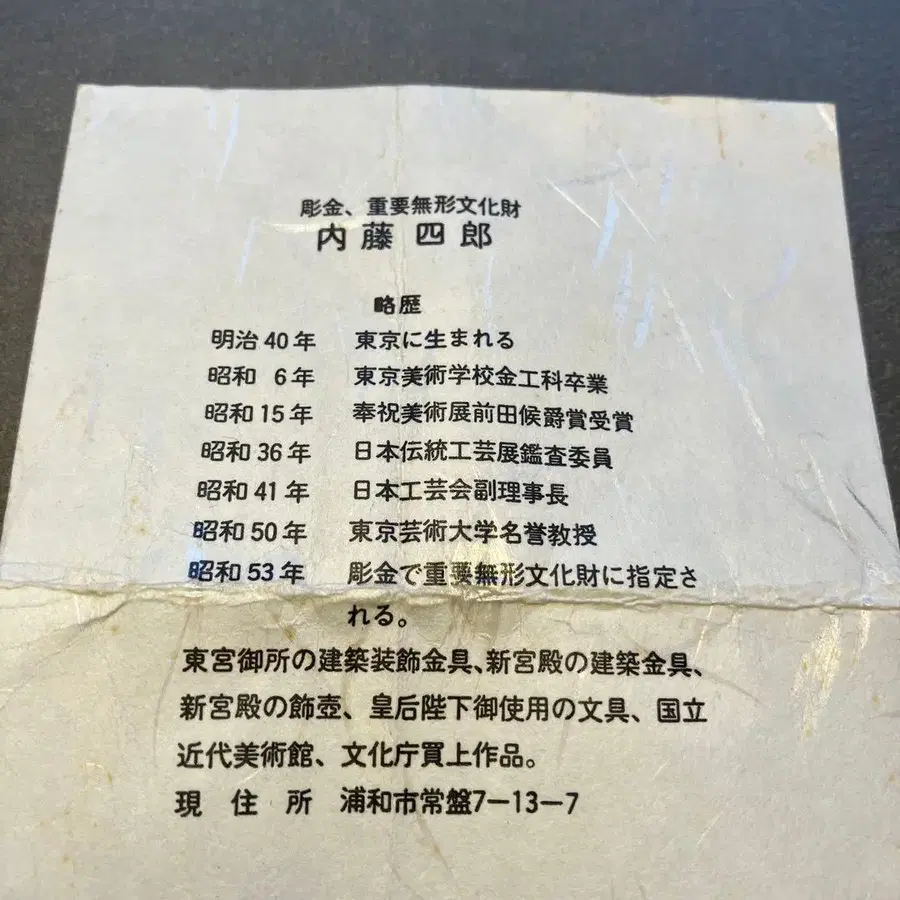 彫金、重要無形文化財
内藤 四郎
略歴
明治40年 東京に生まれる
昭和 6年 東京美術学校金工科卒業
昭和15年 奉祝美術展前田候爵賞受賞
昭和36年 日本伝統工芸展鑑査委員
昭和41年 日本工芸会副理事長
昭和50年 東京芸術大学名誉教授
昭和53年 彫金で重要無形文化財に指定さ
れる。
東宮御所の建築装飾金具、新宮殿の建築金具、
新宮殿の飾壺、皇后陛下御使用の文具、国立
近代美術館、文化庁買上作品。
現住所 浦和市常盤7-13-7